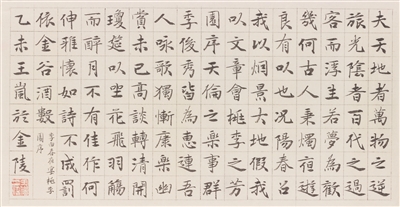 夫天地者萬物之逆
旅光陰者百代之過
客而浮生若夢為歡
幾何古人秉燭夜遊
良有以也況陽春召
我以烟景大塊假我
以文章會桃李之芳
園序天倫之樂事群
季俊秀皆為惠連吾
人詠歌獨慚康樂幽
賞未已高談轉清開
瓊筵以坐花飛羽觴
而醉月不有佳作何
伸雅懷如詩不成罰
依金谷酒數
李白春夜宴桃李
園序
乙未王嵐於金陵